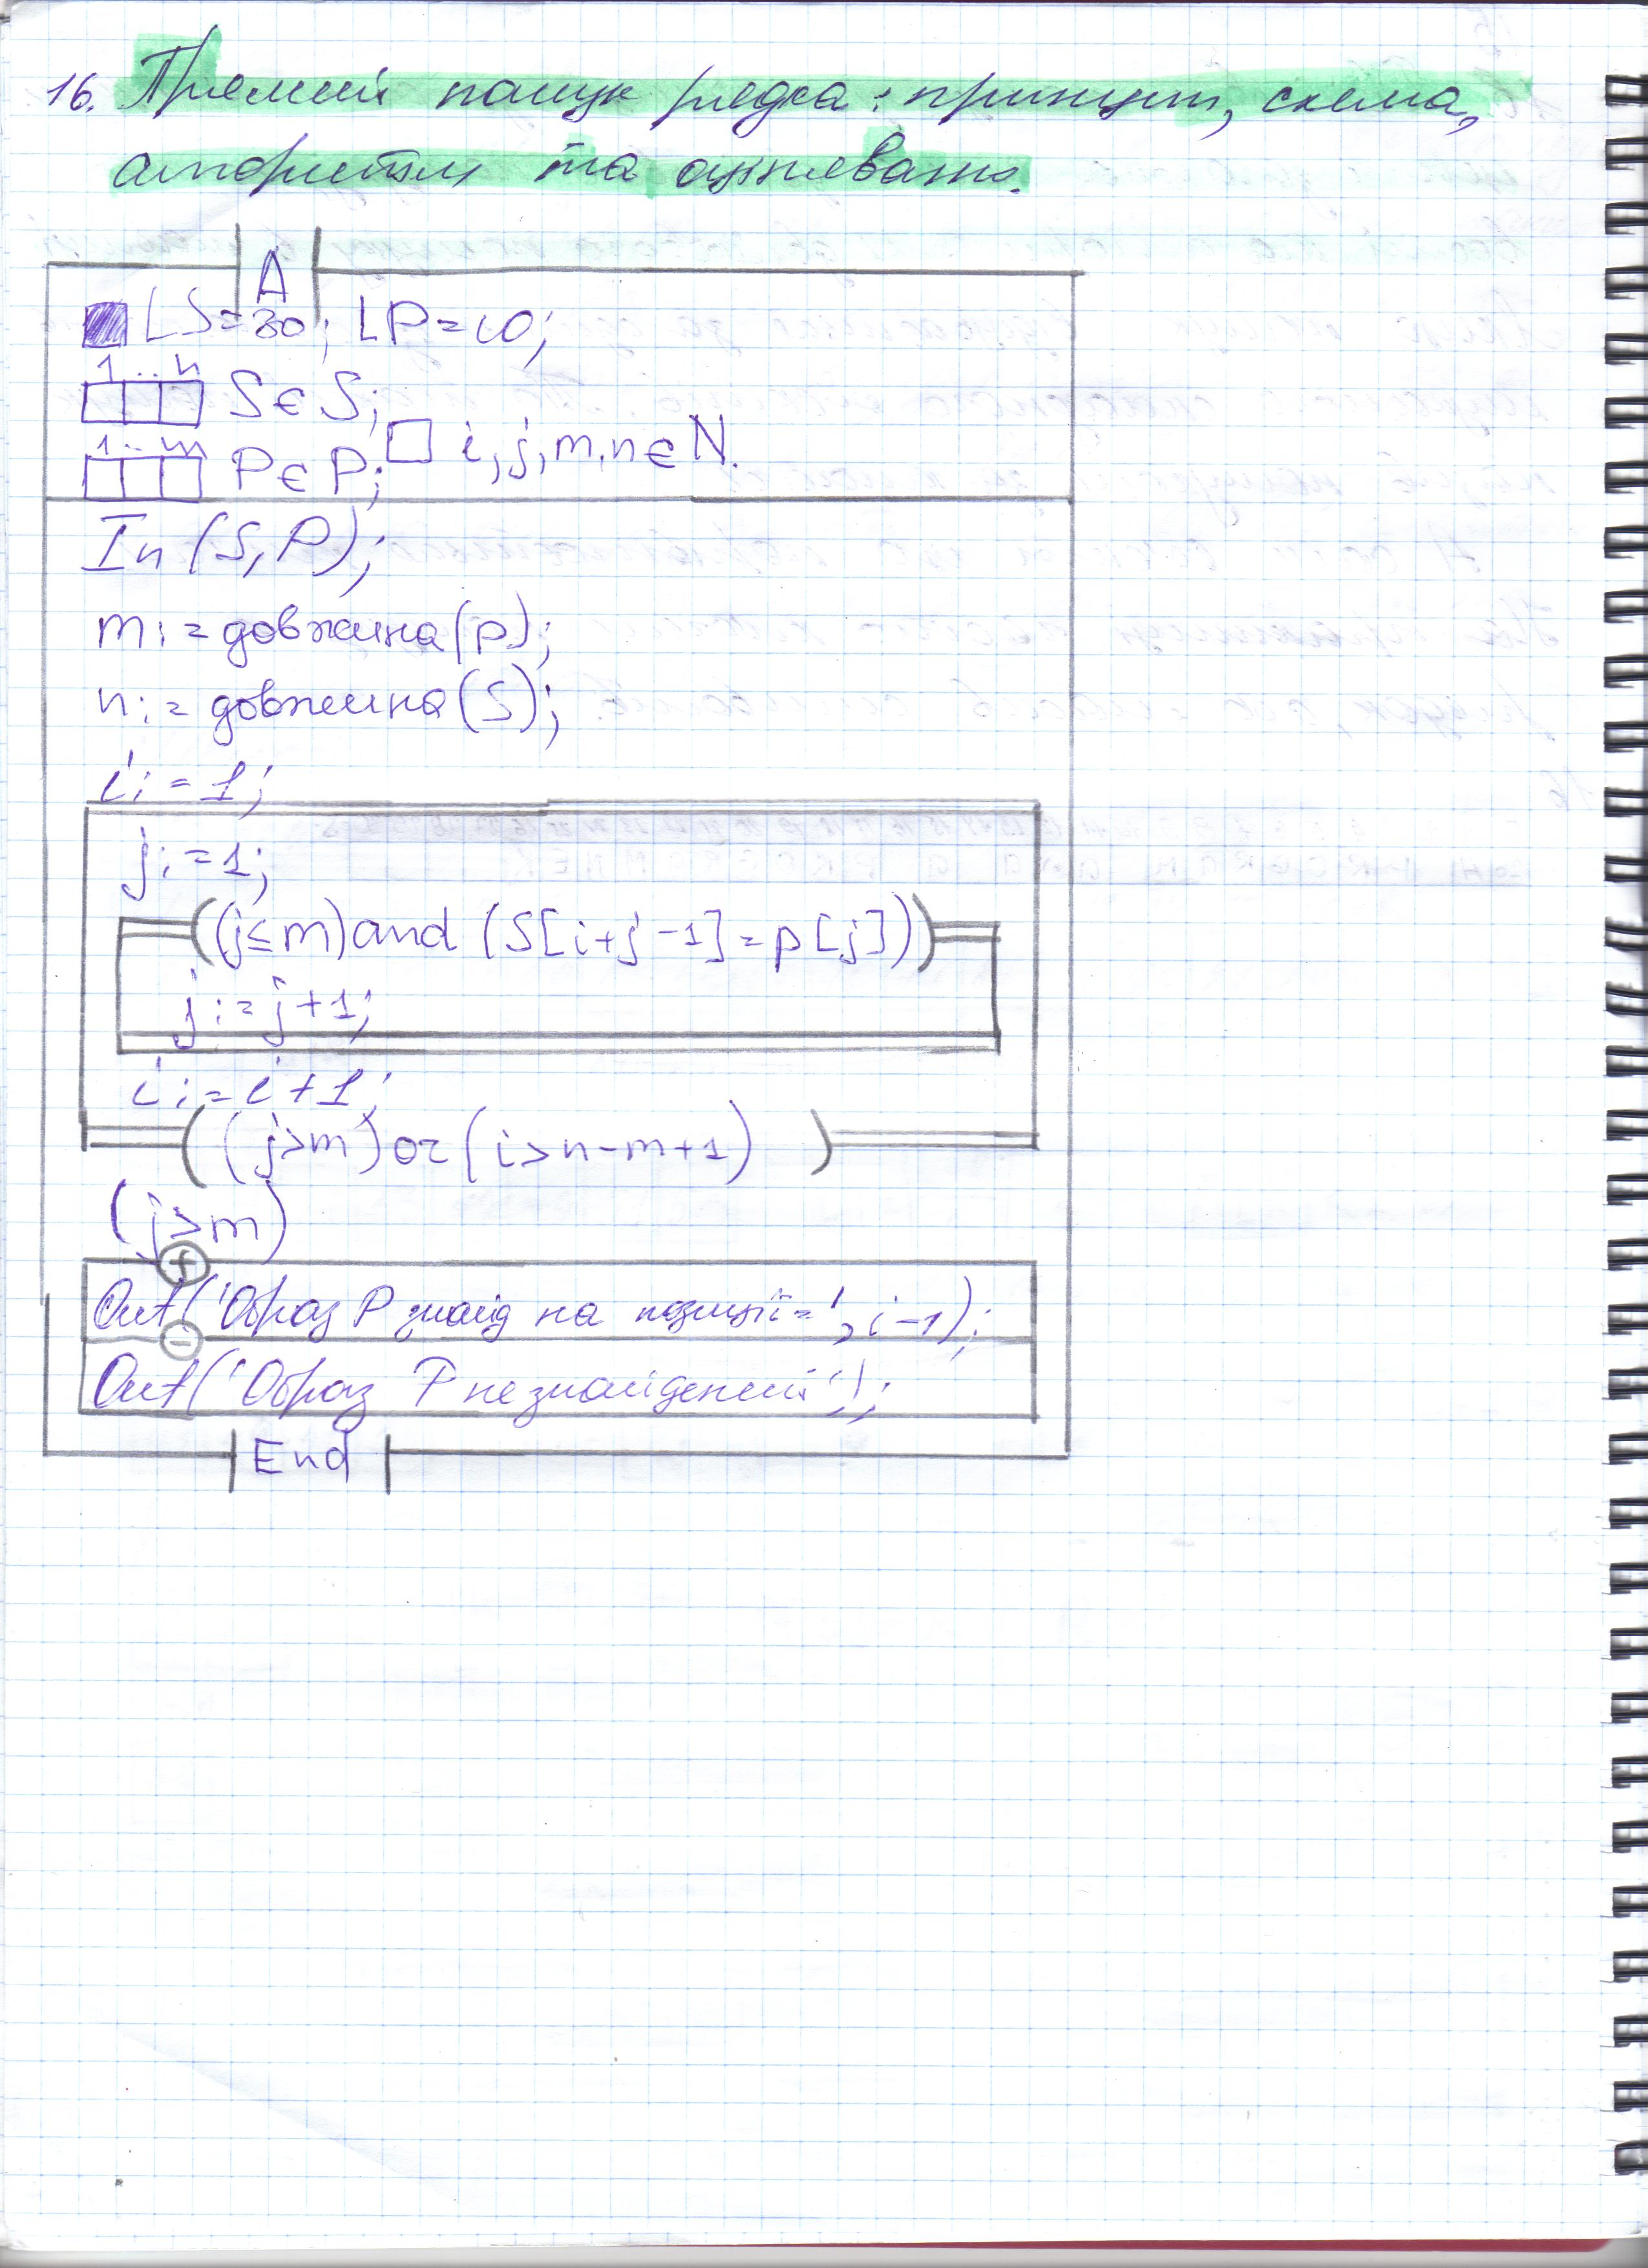 16. Прямий пошук рядка: принцип, схема,
алгоритм та оцінювання.
A
LS=30; LP=10;
1..n S∈S;
1..m P∈P; i,j,m,n∈N.
In(S,P);
m:=довжина(p);
n:=довжина(S);
i:=1;
j:=1;
((j≤m)and(S[i+j-1]=p[j]))
j:=j+1;
i:=i+1;
((j>m)or(i>n-m+1))
(j>m)
+
Out('Образ P знайд на позиції=', i-1);
-
Out('Образ P не знайдений');
End